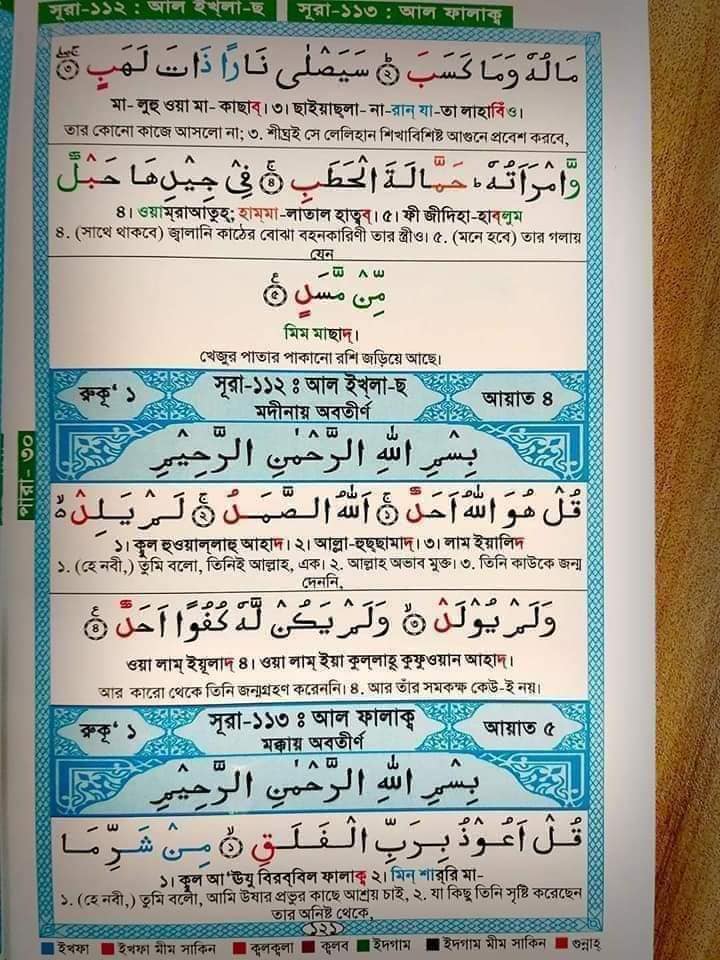 সূরা-১১২ : আল ইখ্লা-ছ সূরা-১১৩ : আল ফালাক্ব
مَالُهٗ وَمَا كَسَبَ ۟ؕ۝۲ سَيَصْلٰى نَارًا ذَاتَ لَهَبٍ ۝۳
মা- লুহূ ওয়া মা- কাছাব্। ৩। ছাইয়াছ্লা- না-রান্ যা-তা লাহাবিঁও।
তার কোনো কাজে আসলো না; ৩. শীঘ্রই সে লেলিহান শিখাবিশিষ্ট আগুনে প্রবেশ করবে,
وَّامْرَاَتُهٗ ؕ حَمَّالَةَ الْحَطَبِ ۝۴ۚ فِيْ جِيْدِهَا حَبْلٌ
৪। ওয়াম্‌রাআতুহূ; হাম্‌মা-লাতাল হাত্বব্। ৫। ফী জীদিহা-হাব্‌লুম
৪. (সাথে থাকবে) জ্বালানি কাঠের বোঝা বহনকারিণী তার স্ত্রীও। ৫. (মনে হবে) তার গলায়
যেন
مِّنْ مَّسَدٍ ۝۵
মিম মাছাদ্।
খেজুর পাতার পাকানো রশি জড়িয়ে আছে।
রুকূ‘ ১ সূরা-১১২ : আল ইখ্লা-ছ আয়াত ৪
মদীনায় অবতীর্ণ
পারা- ৩০
بِسْمِ اللهِ الرَّحْمٰنِ الرَّحِيْمِ
قُلْ هُوَ اللهُ اَحَدٌ ۝۱ۚ اَللهُ الصَّمَدُ ۝۲ۚ لَمْ يَلِدْ ۙ۬
১। ক্বুল হুওয়াল্লাহু আহাদ। ২। আল্লা-হুছ্ছামাদ্। ৩। লাম ইয়ালিদ
১. (হে নবী,) তুমি বলো, তিনিই আল্লাহ, এক। ২. আল্লাহ অভাব মুক্ত। ৩. তিনি কাউকে জন্ম
দেননি,
وَلَمْ يُوْلَدْ ۝۳ۙ وَلَمْ يَكُنْ لَّهٗ كُفُوًا اَحَدٌ ۝۴
ওয়া লাম্ ইয়ূলাদ্ ৪। ওয়া লাম্ ইয়া কুল্লাহূ কুফুওয়ান আহাদ্।
আর কারো থেকে তিনি জন্মগ্রহণ করেননি। ৪. আর তাঁর সমকক্ষ কেউ-ই নয়।
রুকূ‘ ১ সূরা-১১৩ : আল ফালাক্ব আয়াত ৫
মক্কায় অবতীর্ণ
بِسْمِ اللهِ الرَّحْمٰنِ الرَّحِيْمِ
قُلْ اَعُوْذُ بِرَبِّ الْفَلَقِ ۝۱ۙ مِنْ شَرِّ مَا
১। ক্বুল আ‘ঊযু বিরব্বিল ফালাক্ব ২। মিন্ শার্‌রি মা-
১. (হে নবী,) তুমি বলো, আমি উষার প্রভুর কাছে আশ্রয় চাই, ২. যা কিছু তিনি সৃষ্টি করেছেন
তার অনিষ্ট থেকে,
১২১
ইখফা ইখফা মীম সাকিন ক্বলক্বলা ক্বলব ইদগাম ইদগাম মীম সাকিন গুন্নাহ্